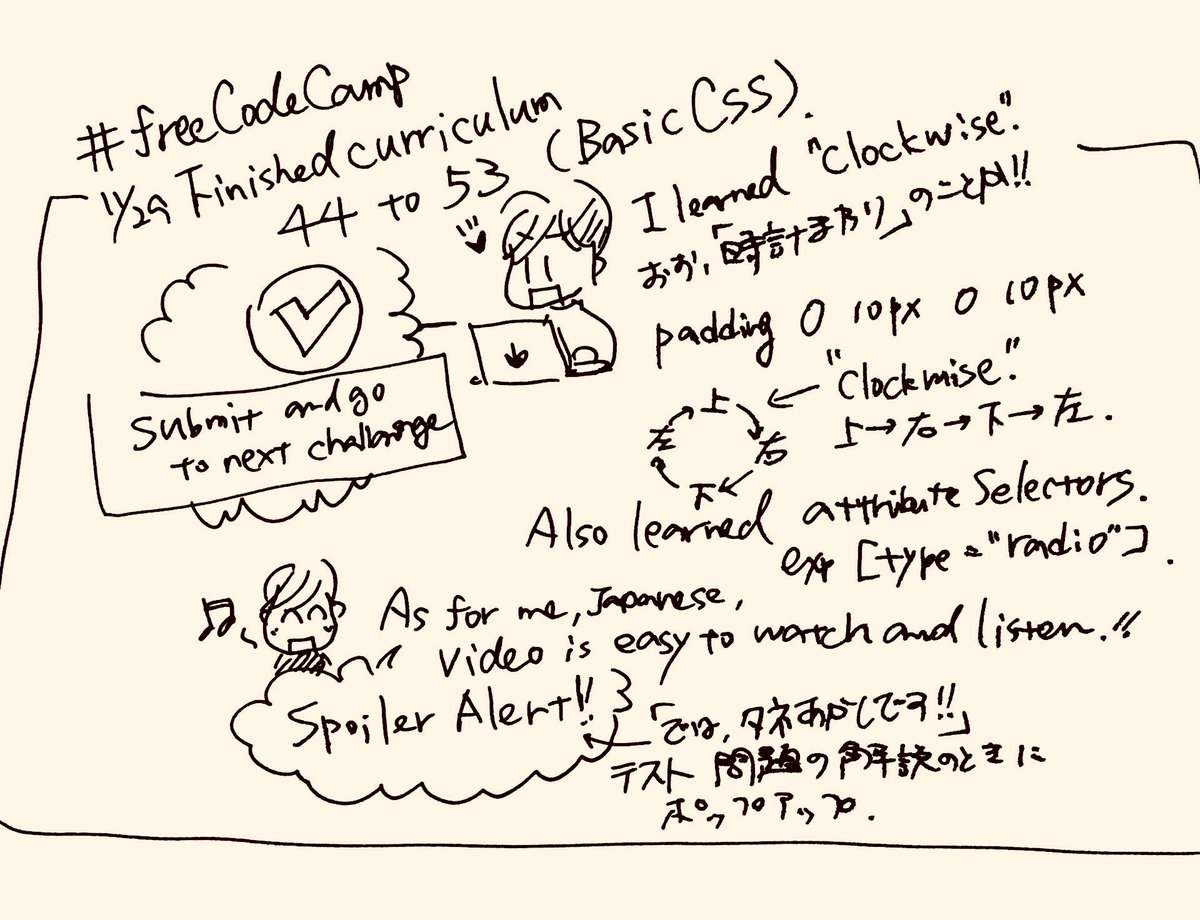 #freeCodeCamp
11/29 Finished curriculum
44 to 53 (Basic CSS).
I learned "Clockwise".
おお、「時計まわり」のことか!!
padding 0 10px 0 10px
"Clockwise."
上→右→下→左.
上
右
下
左
Submit and go
to next challenge
Also learned attribute Selectors.
ex [type="radio"].
As for me, Japanese,
video is easy to watch and listen.!!
Spoiler Alert!!
「では、タネあかしです!!」
テスト問題の解説のときに
ポップアップ.